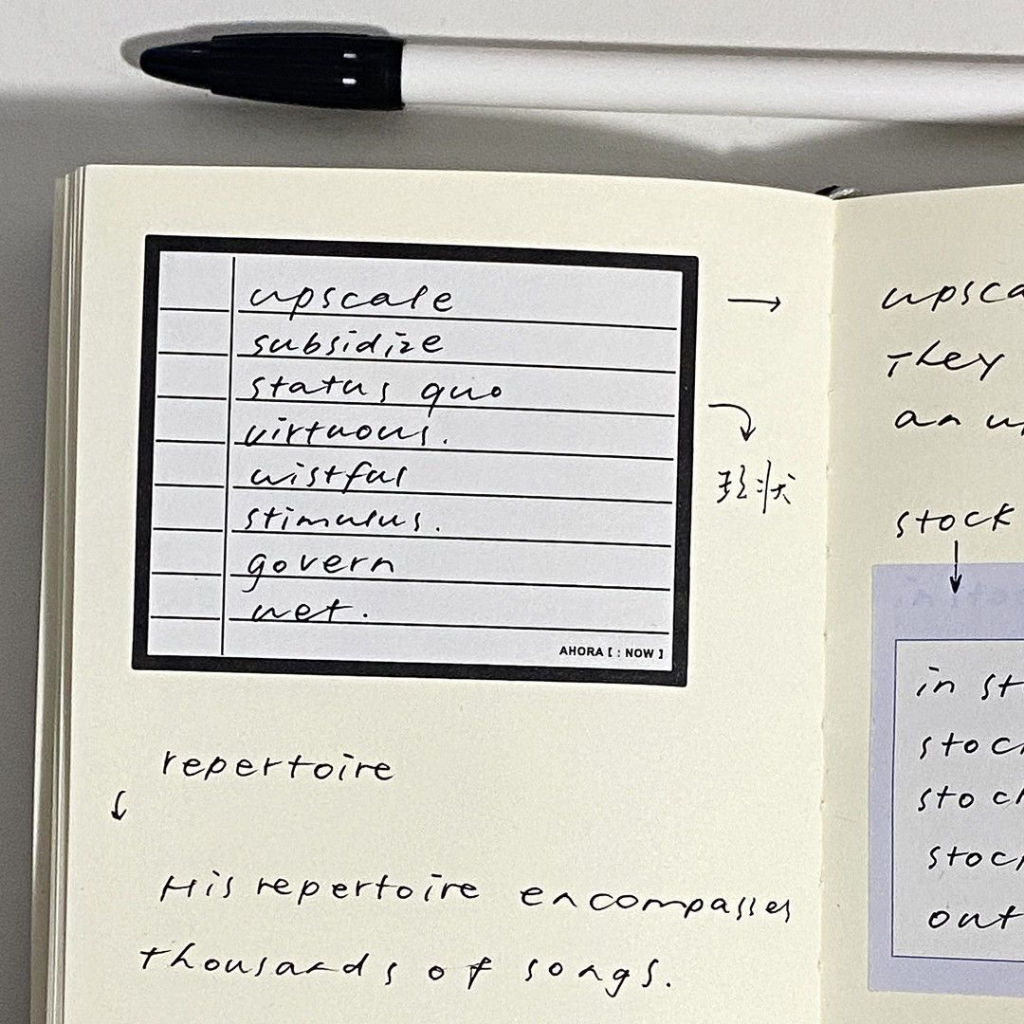 upscale
subsidize
status quo
virtuous.
wistful
stimulus.
govern
wet.
AHORA [ : NOW ]
现状
repertoire
His repertoire encompasses
thousands of songs.
upsca
They
an up
stock
in st
stock
stock
stock
out